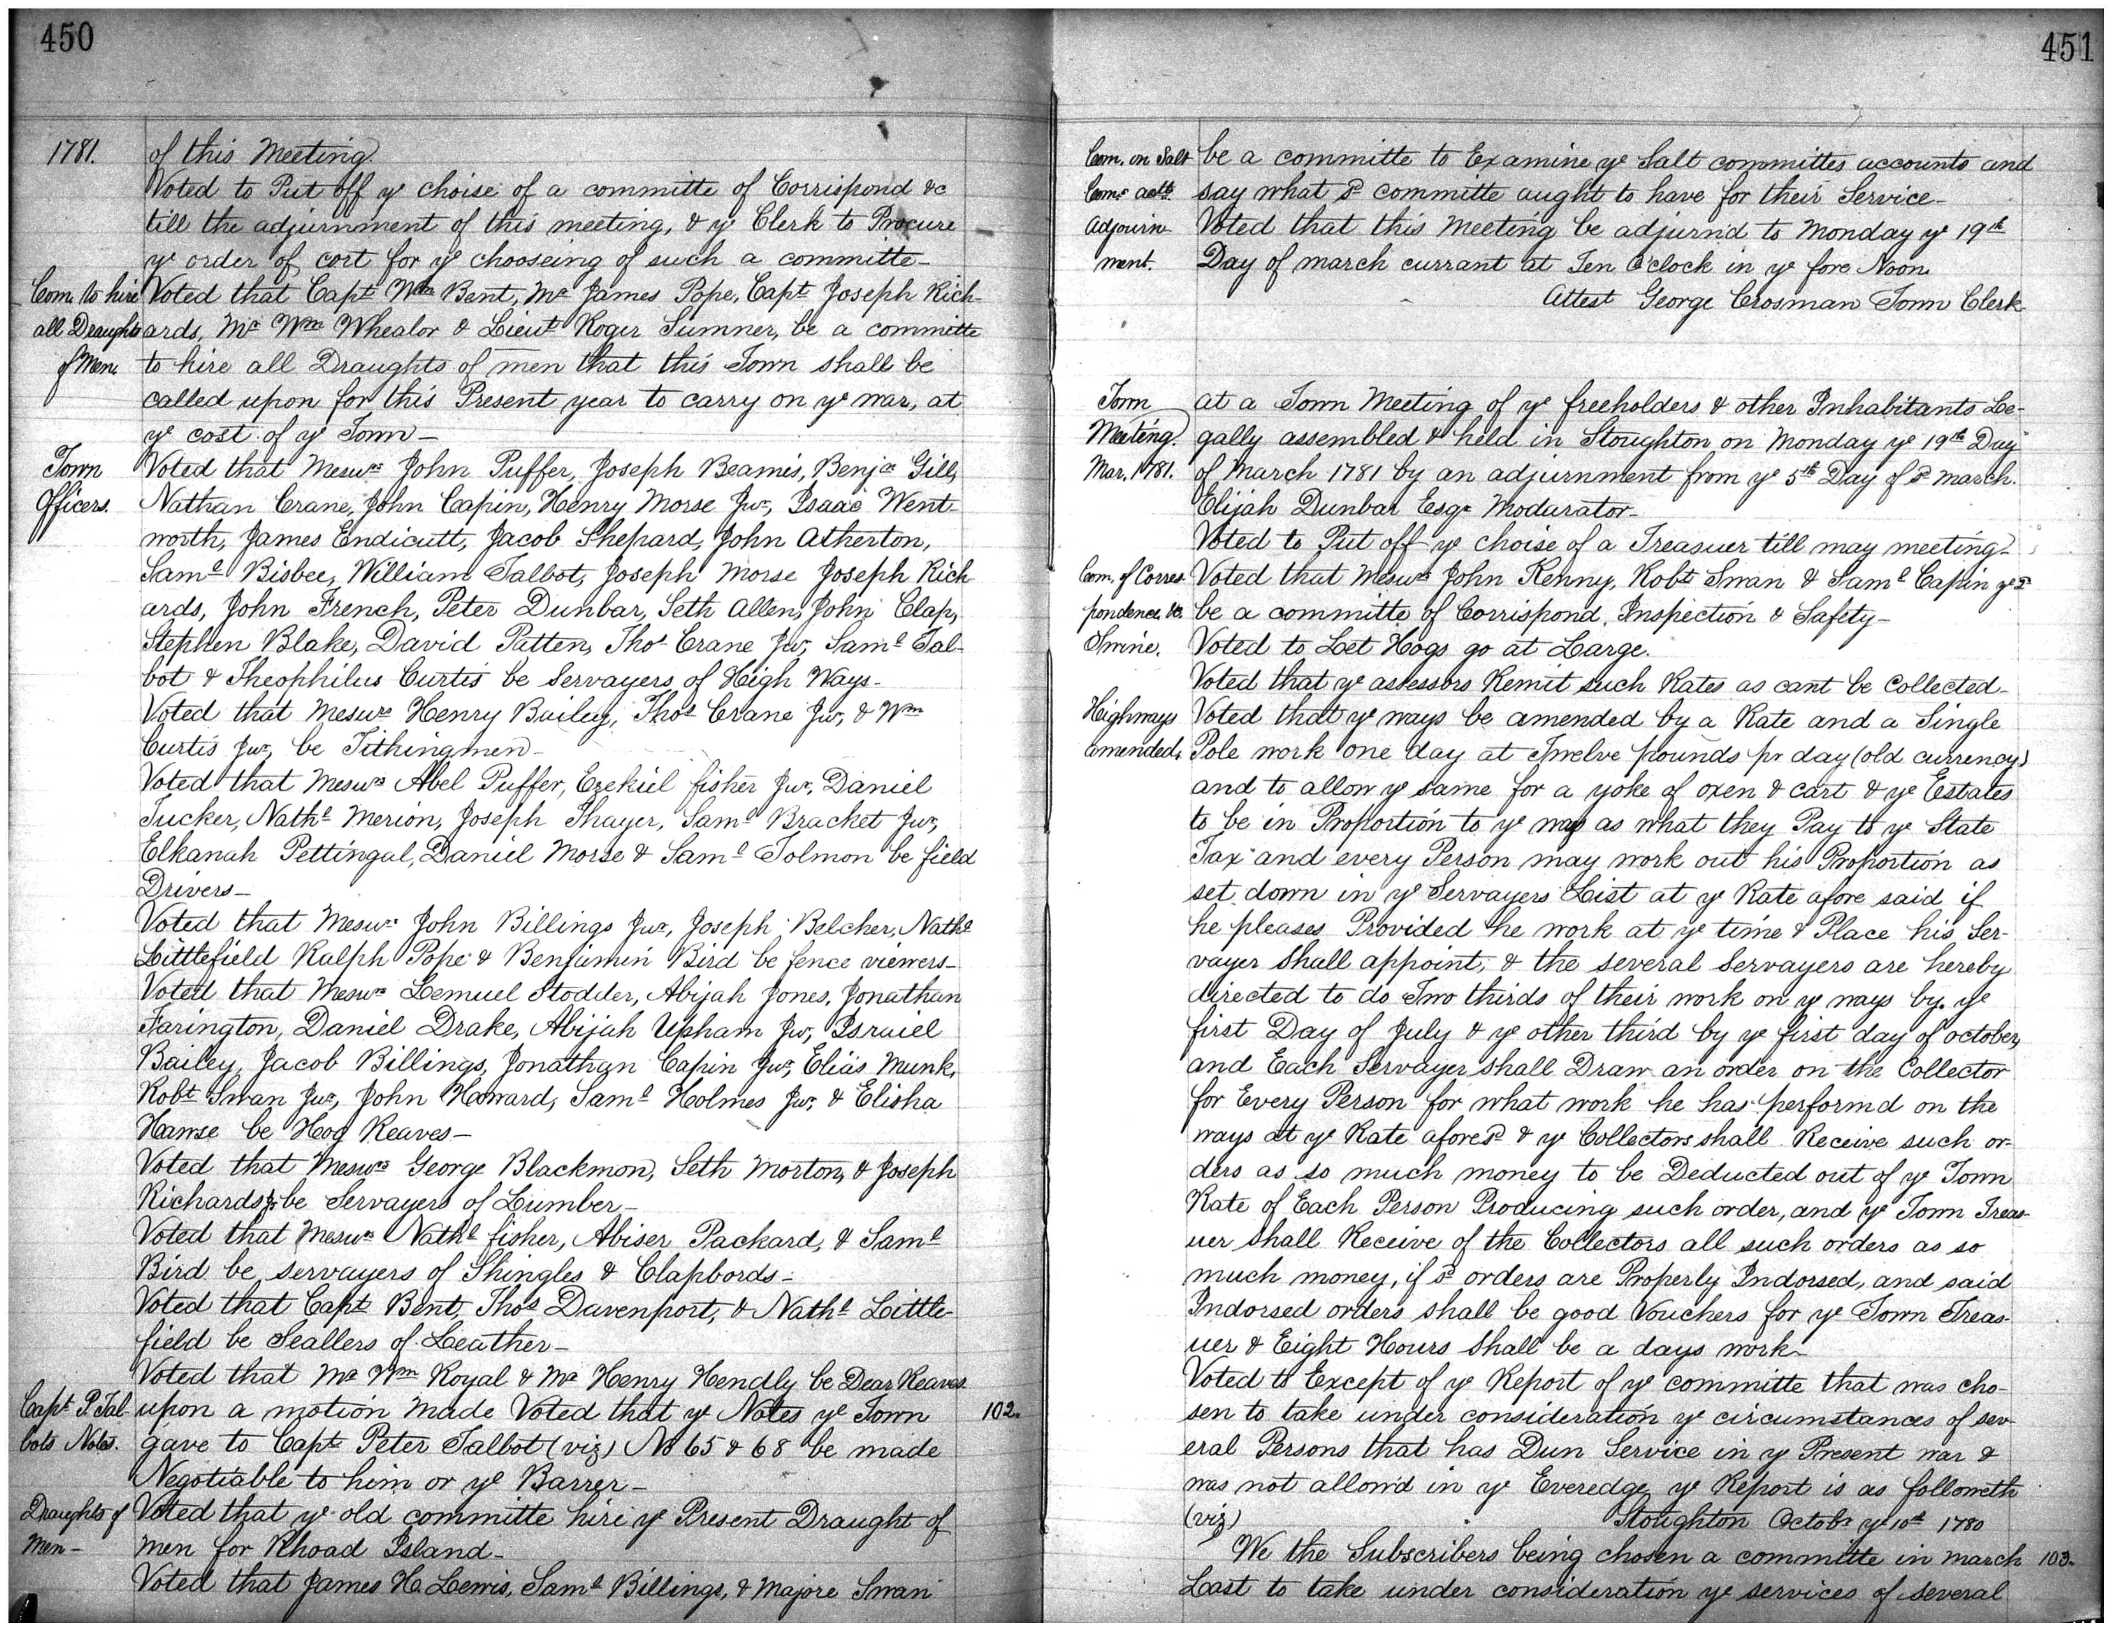 450
1781.
of this Meeting.
Voted to Put off ye choise of a committe of Corrispond &c
till the adjurnment of this meeting, & ye Clerk to Procure
ye order of cort for ye chooseing of such a committe—
Com. to hire
all Draughts
of Men.
Voted that Capt Wm Bent, Mr James Pope, Capt Joseph Rich-
ards, Mr Wm Whealor & Lieut Roger Sumner, be a committe
to hire all Draughts of men that this Town shall be
called upon for this Present year to carry on ye war, at
ye cost of ye Town—
Town
Officers.
Voted that Mesurs John Puffer, Joseph Beamis, Benja Gill,
Nathan Crane, John Capin, Henry Morse Jur, Isaac Went-
worth, James Endicutt, Jacob Shepard, John Atherton,
Saml Bisbee, William Talbot, Joseph Morse Joseph Rich
ards, John French, Peter Dunbar, Seth Allen, John Clap,
Stephen Blake, David Patten, Thos Crane Jur, Saml Tal-
bot & Theophilus Curtis be Servayers of High Ways-
Voted that Mesurs Henry Bailey, Thos Crane Jur, & Wm
Curtis Jur, be Tithingmen-
Voted that Mesurs Abel Puffer, Ezekiel fisher Jur, Daniel
Tucker, Nathl Merion, Joseph Thayer, Saml Bracket Jur,
Elkanah Pettingal, Daniel Morse & Saml Tolmon be field
Drivers—
Voted that Mesurs John Billings Jur, Joseph Belcher, Nathl
Littlefield Ralph Pope & Benjamin Bird be fence viewers-
Voted that Mesurs Lemuel Stodder, Abijah Jones, Jonathan
Farington, Daniel Drake, Abijah Upham Jur, Israiel
Bailey, Jacob Billings, Jonathan Capin Jur, Elias Munk,
Robt Swan Jur, John Haward, Saml Holmes Jur, & Elisha
Hawse be Hog Reaves—
Voted that Mesurs George Blackmon, Seth Morton, & Joseph
Richards Jr be Servayers of Lumber—
Voted that Mesurs Nathl fisher, Abiser Packard, & Saml
Bird be servayers of Shingles & Clapbords-
Voted that Capt Bent, Thos Davenport, & Nathl Little-
field be Seallers of Leather—
Voted that Mr Wm Royal & Mr Henry Hendly be Dear Reaves
Capt P. Tal-
bots Notes.
upon a motion made Voted that ye Notes ye Town
102.
gave to Capt Peter Talbot (viz) No 65 & 68 be made
Negotiable to him or ye Barrer—
Draughts of
Men—
Voted that ye old committe hire ye Present Draught of
men for Rhoad Island-
Voted that James H. Lewis, Saml Billings, & Majore Swan
451
Com. on Salt
Coms accts.
be a committe to Examine ye Salt committes accounts and
say what sd committe aught to have for their Service-
Adjourn-
ment.
Voted that this Meeting be adjurn'd to Monday ye 19th
Day of march currant at Ten O'clock in ye fore Noon.
Attest George Crosman Town Clerk
Town
Meeting.
Mar. 1781.
at a Town Meeting of ye freeholders & other Inhabitants Le-
gally assembled & held in Stoughton on Monday ye 19th Day
of March 1781 by an adjurnment from ye 5th Day of sd March.
Elijah Dunbar Esqr Modarator-
Voted to Put off ye choise of a Treasuer till may meeting-
Com. of Corres-
pondence &c.
Voted that Mesurs John Kenny, Robt Swan & Saml Capin ye 3d
be a committe of Corrispond, Inspection & Safety-
Swine.
Voted to Let Hogs go at Large.
Voted that ye assessors Remit such Rates as cant be Collected-
Highways
amended.
Voted that ye ways be amended by a Rate and a Single
Pole work one day at Twelve pounds pr day (old currency)
and to allow ye same for a yoke of oxen & cart & ye Estates
to be in Proportion to ye way as what they Pay to ye State
Tax and every Person may work out his Proportion as
set down in ye Servayers List at ye Rate afore said if
he pleases Provided he work at ye time & Place his Ser-
vayer Shall appoint, & the several Servayers are hereby
directed to do Two thirds of their work on ye ways by ye
first Day of July & ye other third by ye first day of october,
and Each Servayer shall Draw an order on the Collector
for Every Person for what work he has perform'd on the
ways at ye Rate aforesd & ye Collectors shall Receive such or-
ders as so much money to be Deducted out of ye Town
Rate of Each Person Producing such order, and ye Town Treas-
uer shall Receive of the Collectors all such orders as so
much money, if sd orders are Properly Indorsed, and said
Indorsed orders shall be good Vouchers for ye Town Treas-
uer & Eight Hours shall be a days work-
Voted to Except of ye Report of ye committe that was cho-
sen to take under consideration ye circumstances of sev-
eral Persons that has Dun Service in ye Present war &
was not allow'd in ye Everedge ye Report is as followeth
(viz) Stoughton Octobr ye 10th 1780
We the Subscribers being chosen a committe in march
103.
Last to take under consideration ye services of several